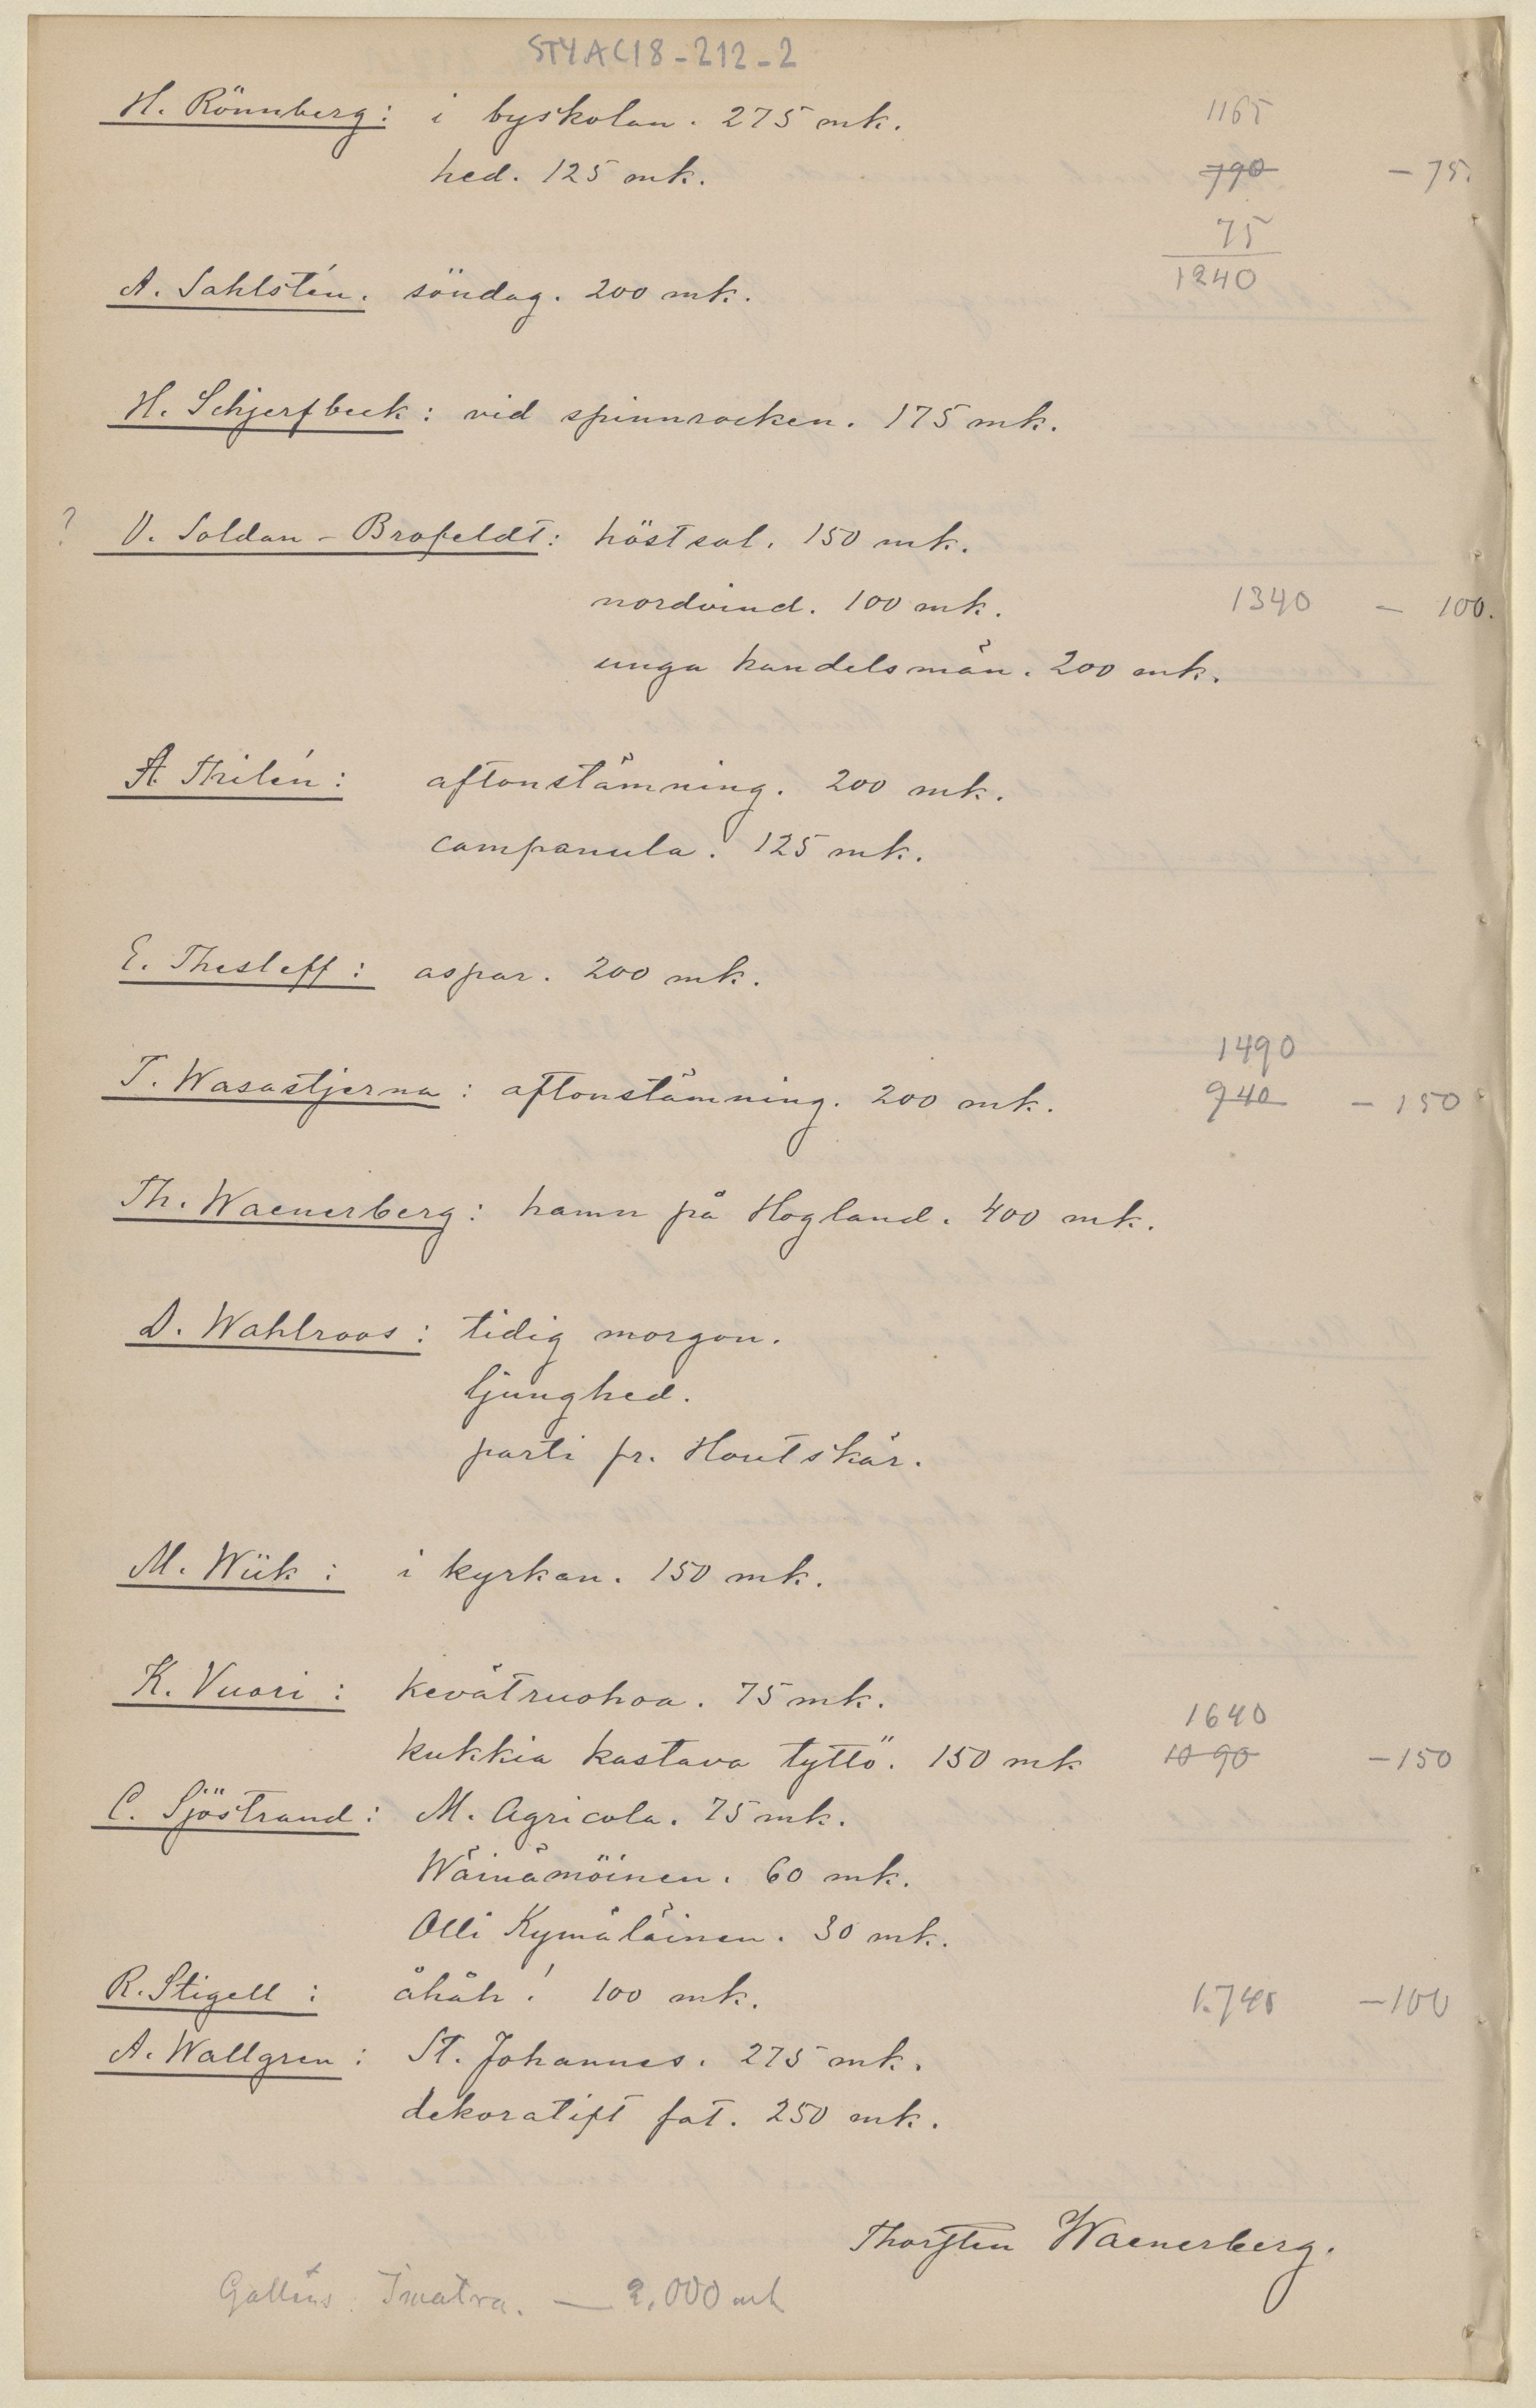 STYAC18-212-2
H. Rönnberg: i byskolan. 275 mk. 1165
hed. 125 mk. 790 - 75.
75
A. Sahlstén. söndag. 200 mk. 1240
H. Schjerfbeck: vid spinnrocken. 175 mk.
? V. Soldan-Brofeldt: höstsol. 150 mk.
nordvind. 100 mk. 1340 - 100.
unga handelsmän. 200 mk.
A. Thilén: aftonstämning. 200 mk.
campanula. 125 mk.
E. Thesleff: aspar. 200 mk.
1490
T. Wasastjerna: aftonstämning. 200 mk. 940 - 150
Th. Waenerberg: hamn på Hogland. 400 mk.
D. Wahlroos: tidig morgon.
ljunghed.
parti fr. Houtskär.
M. Wiik: i kyrkan. 150 mk.
K. Vuori: kevätruohoa. 75 mk.
1640
kukkia kastava tyttö. 150 mk 1090 - 150
C. Sjöstrand: M. Agricola. 75 mk.
Wäinämöinen. 60 mk.
Olli Kymäläinen. 30 mk.
R. Stigell: åhåh! 100 mk. 1.740 - 100
A. Wallgren: St. Johannes. 275 mk.
dekoratift fat. 250 mk.
Thorsten Waenerberg.
Galléns: Imatra. — 2,000 mk